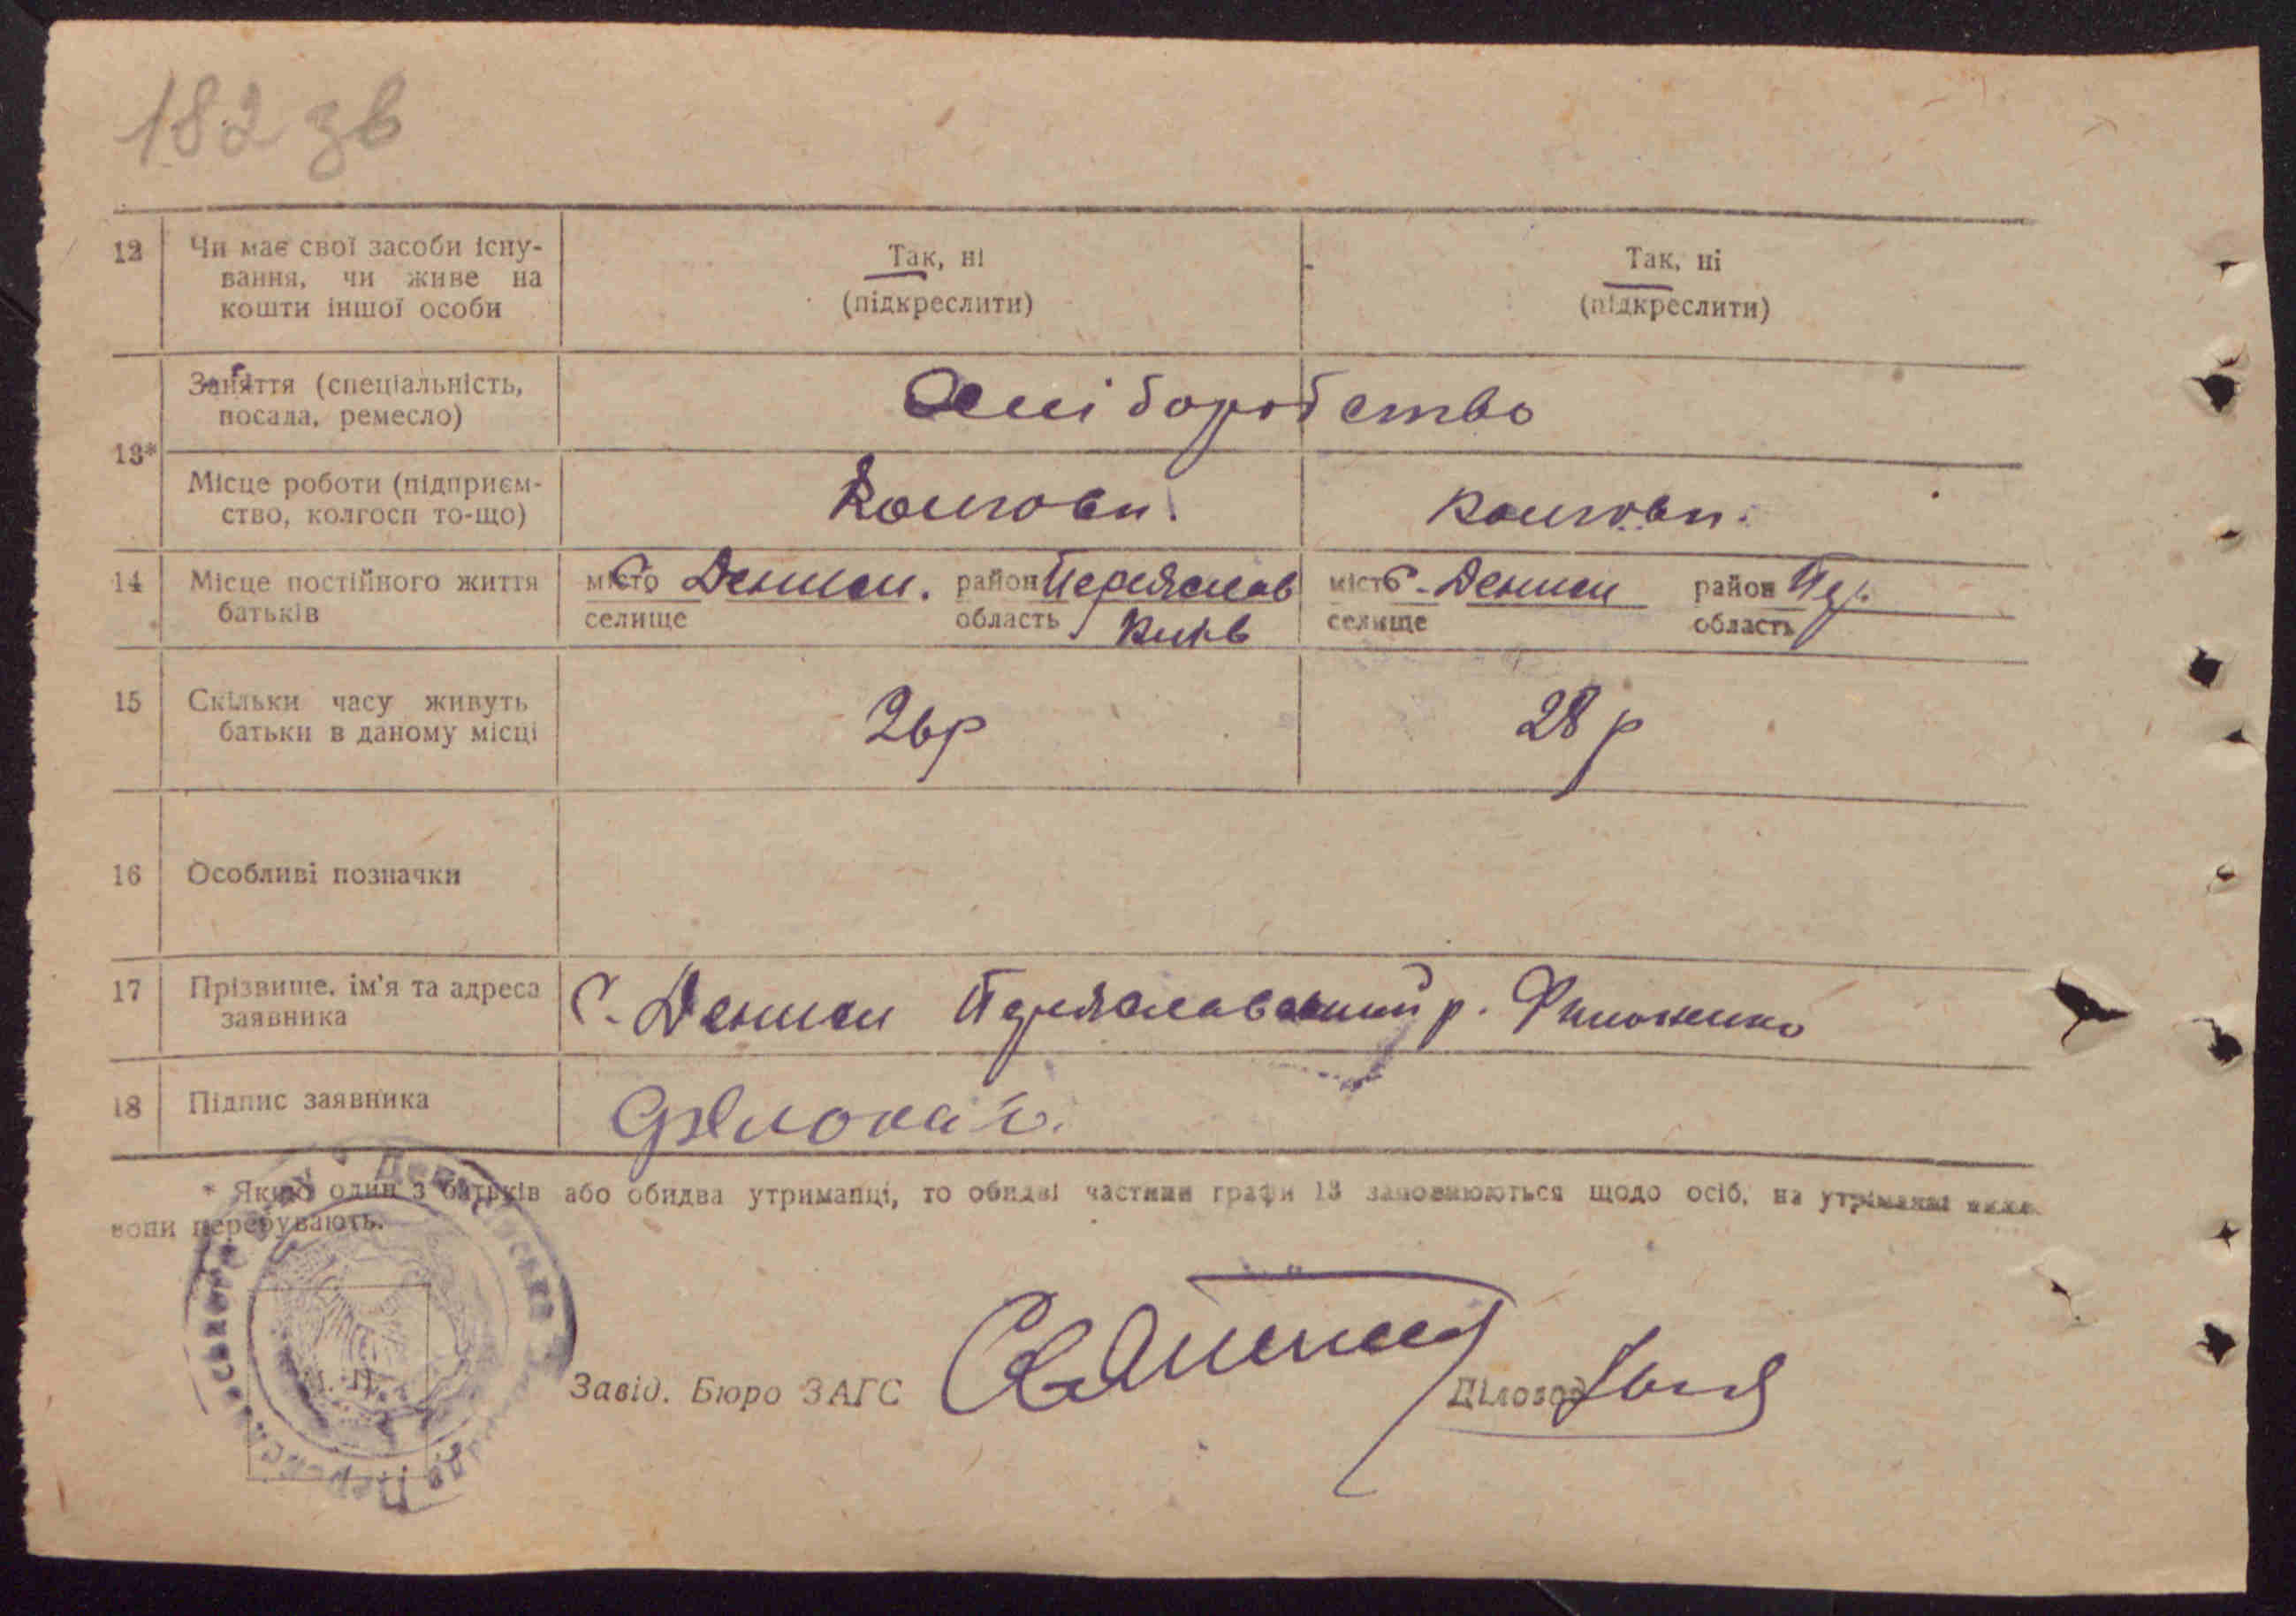 182 зв
12 Чи має свої засоби існу-
вання, чи живе на
кошти іншої особи
Так, ні
(підкреслити)
Так, ні
(підкреслити)
13*
Заняття (спеціальність,
посада, ремесло)
Хліборобство
Місце роботи (підприєм-
ство, колгосп то-що)
Колгосп.
колгосп.
14 Місце постійного життя
батьків
місто С. Дениси. район Переяслав
селище область Київ
місто С. Дениси район Пер.
селище область
15 Скільки часу живуть
батьки в даному місці
26 р
28 р
16 Особливі позначки
17 Прізвище, ім'я та адреса
заявника
С. Дениси Переяславський р. Филоненко
18 Підпис заявника
* Якщо один з батьків або обидва утриманці, то обидві частини графи 13 заповнюються щодо осіб, на утриманні яких
вони перебувають.
М. П.
Завід. Бюро ЗАГС
Діловод